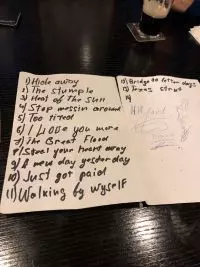 1) Hide away
2) The Stumple
3) Heal of The Sun
4) Stop messin around
5) Too tired
6) I love you more
7) The Great Flood
8) Steal your heart away
9) A new day yesterday
10) Just got paid
11) Walking by Myself
12) Bridge to better days
13) Texas strut
14)